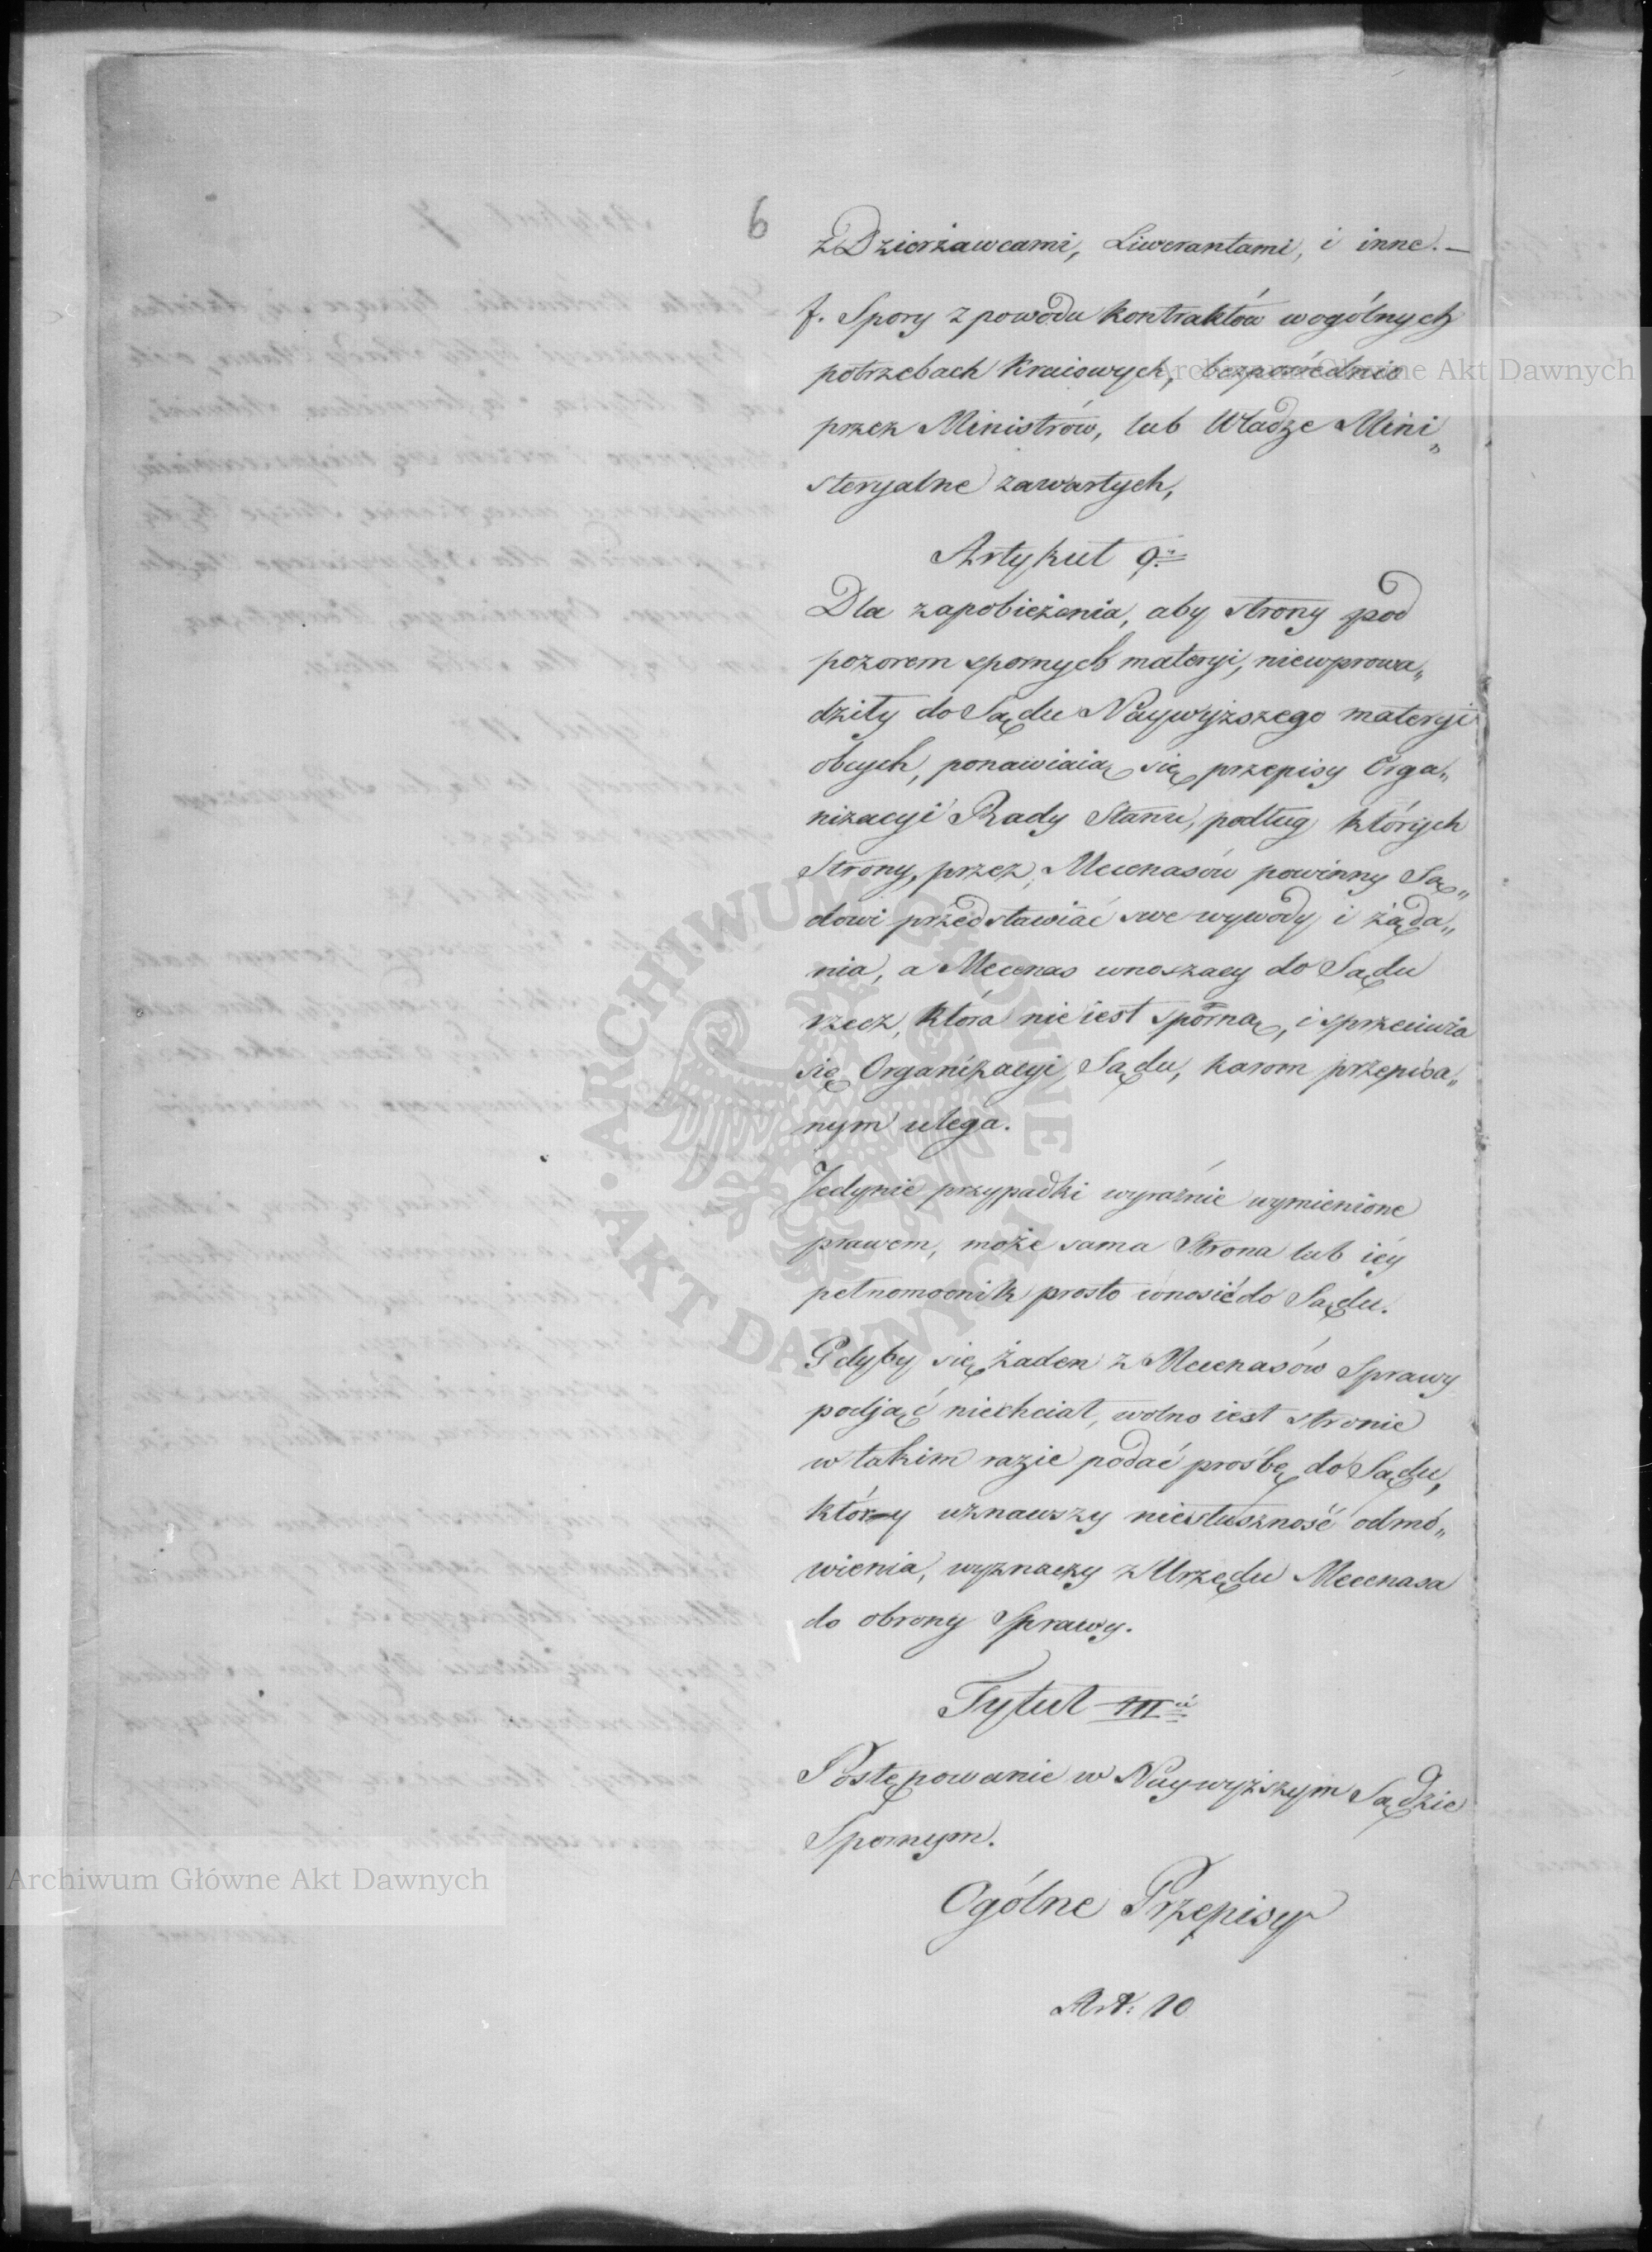 6
z Dzierżawcami, Liwerantami, i inne. —
f. Spory z powodu kontraktów w ogólnych
potrzebach Kraiowych, bezpośrednio
przez Ministrów, lub Władze Mini„
steryalne zawartych,
Artykuł 9.
Dla zapobieżenia, aby strony pod
pozorem spornych materyi, niewprowa„
dziły do Sądu Naywyższego materyi
obcych, ponawiaią się przepisy Orga„
nizacyi Rady Stanu, podług których
Strony, przez Mecenasów powinny Są„
dowi przedstawiać swe wywody i żąda„
nia, a Mecenas wnoszący do Sądu
rzecz, która nie iest sporną, i sprzeciwia
się Organizacyi Sądu, karom przepisa„
nym ulega.
Jedynie przypadki wyraźnie wymienione
prawem, może sama Strona lub iéy
pełnomocnik prosto wnosić do Sądu.
Gdyby się żaden z Mecenasów Sprawy
podjąć niechciał, wolno iest stronie
w takim razie podać prośbę do Sądu,
który uznawszy niesłuszność odmó„
wienia, wyznaczy z Urzędu Mecenasa
do obrony Sprawy.
Tytuł III
Postępowanie w Naywyższym Sądzie
Spornym.
Ogólne Przepisy
Art: 10
Archiwum Główne Akt Dawnych
Archiwum Główne Akt Dawnych
ARCHIWUM GŁÓWNE · AKT DAWNYCH ·